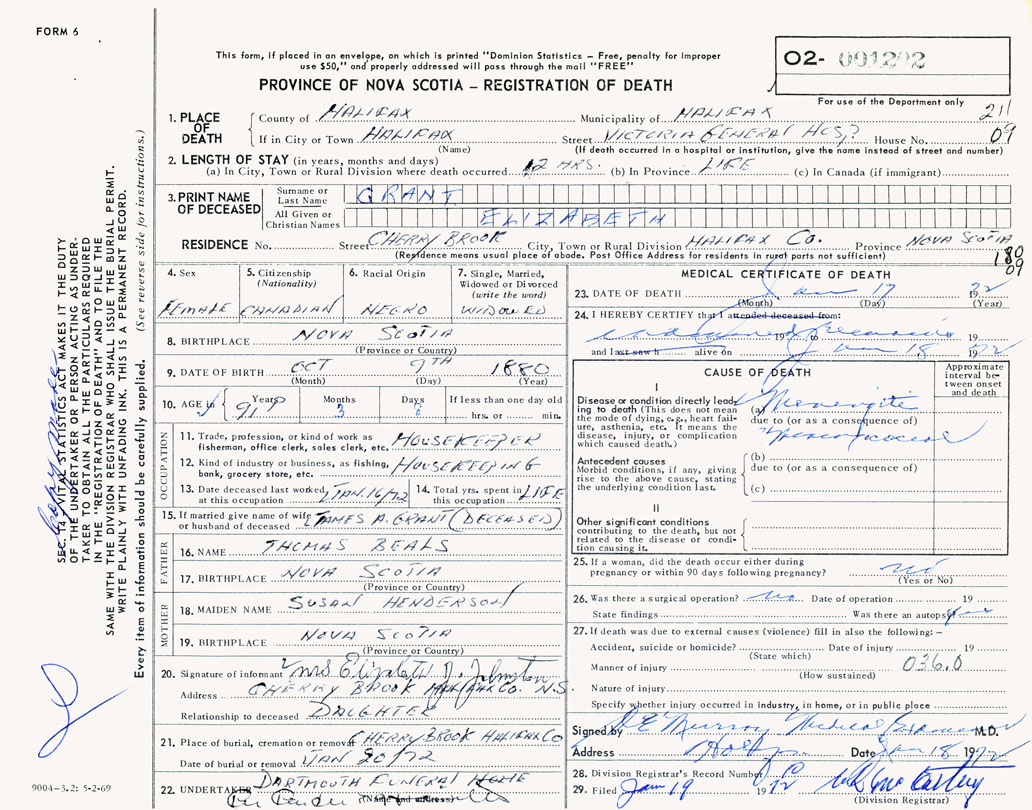 FORM 6
This form, if placed in an envelope, on which is printed "Dominion Statistics – Free, penalty for improper
use $50," and properly addressed will pass through the mail "FREE"
PROVINCE OF NOVA SCOTIA – REGISTRATION OF DEATH
O2- 001202
For use of the Department only
211
09
1. PLACE OF DEATH
County of HALIFAX Municipality of HALIFAX
If in City or Town HALIFAX Street VICTORIA GENERAL HOSP House No.
(Name) (If death occurred in a hospital or institution, give the name instead of street and number)
2. LENGTH OF STAY (in years, months and days)
(a) In City, Town or Rural Division where death occurred 12 HRS. (b) In Province LIFE (c) In Canada (if immigrant)
3. PRINT NAME OF DECEASED
Surname or Last Name GRANT
All Given or Christian Names ELIZABETH
RESIDENCE No. Street CHERRY BROOK City, Town or Rural Division HALIFAX Co. Province NOVA SCOTIA
(Residence means usual place of abode. Post Office Address for residents in rural parts not sufficient)
180
09
4. Sex
FEMALE
5. Citizenship (Nationality)
CANADIAN
6. Racial Origin
NEGRO
7. Single, Married, Widowed or Divorced (write the word)
WIDOWED
8. BIRTHPLACE NOVA SCOTIA
(Province or Country)
9. DATE OF BIRTH OCT 9TH 1880
(Month) (Day) (Year)
10. AGE in Years 91 Months 3 Days If less than one day old
hrs. or min.
OCCUPATION
11. Trade, profession, or kind of work as fisherman, office clerk, sales clerk, etc. HOUSEKEEPER
12. Kind of industry or business, as fishing, bank, grocery store, etc. HOUSEKEEPING
13. Date deceased last worked at this occupation JAN.16/72
14. Total yrs. spent in this occupation LIFE
15. If married give name of wife or husband of deceased JAMES A. GRANT (DECEASED)
FATHER
16. NAME THOMAS BEALS
17. BIRTHPLACE NOVA SCOTIA
(Province or Country)
MOTHER
18. MAIDEN NAME SUSAN HENDERSON
19. BIRTHPLACE NOVA SCOTIA
(Province or Country)
20. Signature of informant Mrs Elizabeth D. Johnston
Address CHERRY BROOK HALIFAX CO. N.S.
Relationship to deceased DAUGHTER
21. Place of burial, cremation or removal CHERRY BROOK HALIFAX CO
Date of burial or removal JAN 20/72
22. UNDERTAKER DARTMOUTH FUNERAL HOME
(Name and address)
MEDICAL CERTIFICATE OF DEATH
23. DATE OF DEATH Jan 17 1972
(Month) (Day) (Year)
24. I HEREBY CERTIFY that I attended deceased from:
19 to 19
and last saw h alive on Jan 18 1972
CAUSE OF DEATH
Approximate interval between onset and death
I
Disease or condition directly leading to death (This does not mean the mode of dying, e.g., heart failure, asthenia, etc. It means the disease, injury, or complication which caused death.)
(a) Meningitis
due to (or as a consequence of)
Antecedent causes
Morbid conditions, if any, giving rise to the above cause, stating the underlying condition last.
(b)
due to (or as a consequence of)
(c)
II
Other significant conditions contributing to the death, but not related to the disease or condition causing it.
25. If a woman, did the death occur either during pregnancy or within 90 days following pregnancy? no
(Yes or No)
26. Was there a surgical operation? no Date of operation 19
State findings Was there an autopsy yes
27. If death was due to external causes (violence) fill in also the following: –
Accident, suicide or homicide? Date of injury 19
(State which)
Manner of injury 036.0
(How sustained)
Nature of injury
Specify whether injury occurred in industry, in home, or in public place
Signed by Murray Medical Examiner M.D.
Address Date Jan 18 1972
28. Division Registrar's Record Number
29. Filed Jan 19 1972
SEC. 14, VITAL STATISTICS ACT MAKES IT THE DUTY
OF THE UNDERTAKER OR PERSON ACTING AS UNDER-
TAKER TO OBTAIN ALL THE PARTICULARS REQUIRED
IN THE "REGISTRATION OF DEATH" AND TO FILE THE
SAME WITH THE DIVISION REGISTRAR WHO SHALL ISSUE THE BURIAL PERMIT.
WRITE PLAINLY WITH UNFADING INK. THIS IS A PERMANENT RECORD.
Every item of information should be carefully supplied. (See reverse side for instructions.)
9004–3.2: 5-2-69